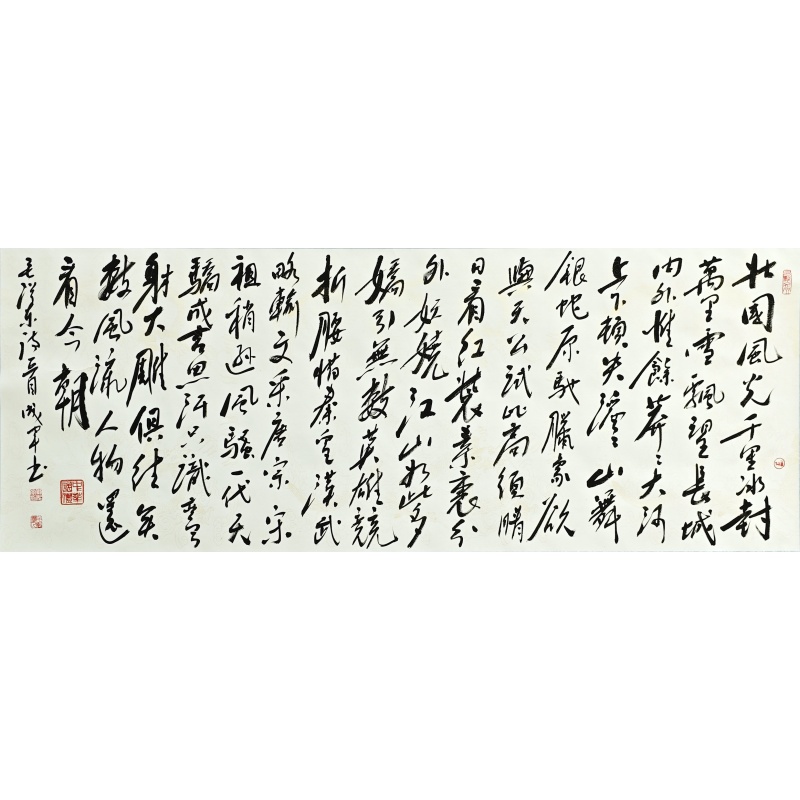 北國風光千里冰封
萬里雪飄望長城
内外惟餘莽々大河
上下頓失滔々山舞
銀蛇原馳臘象欲
與天公試比高須晴
日看紅裝素裹分
外妖嬈江山如此多
嬌引無數英雄競
折腰惜秦皇漢武
略輸文采唐宗宋
祖稍遜風騷一代天
驕成吉思汗只識彎
射大雕俱往矣
數風流人物還
看今朝
毛澤東詩 書